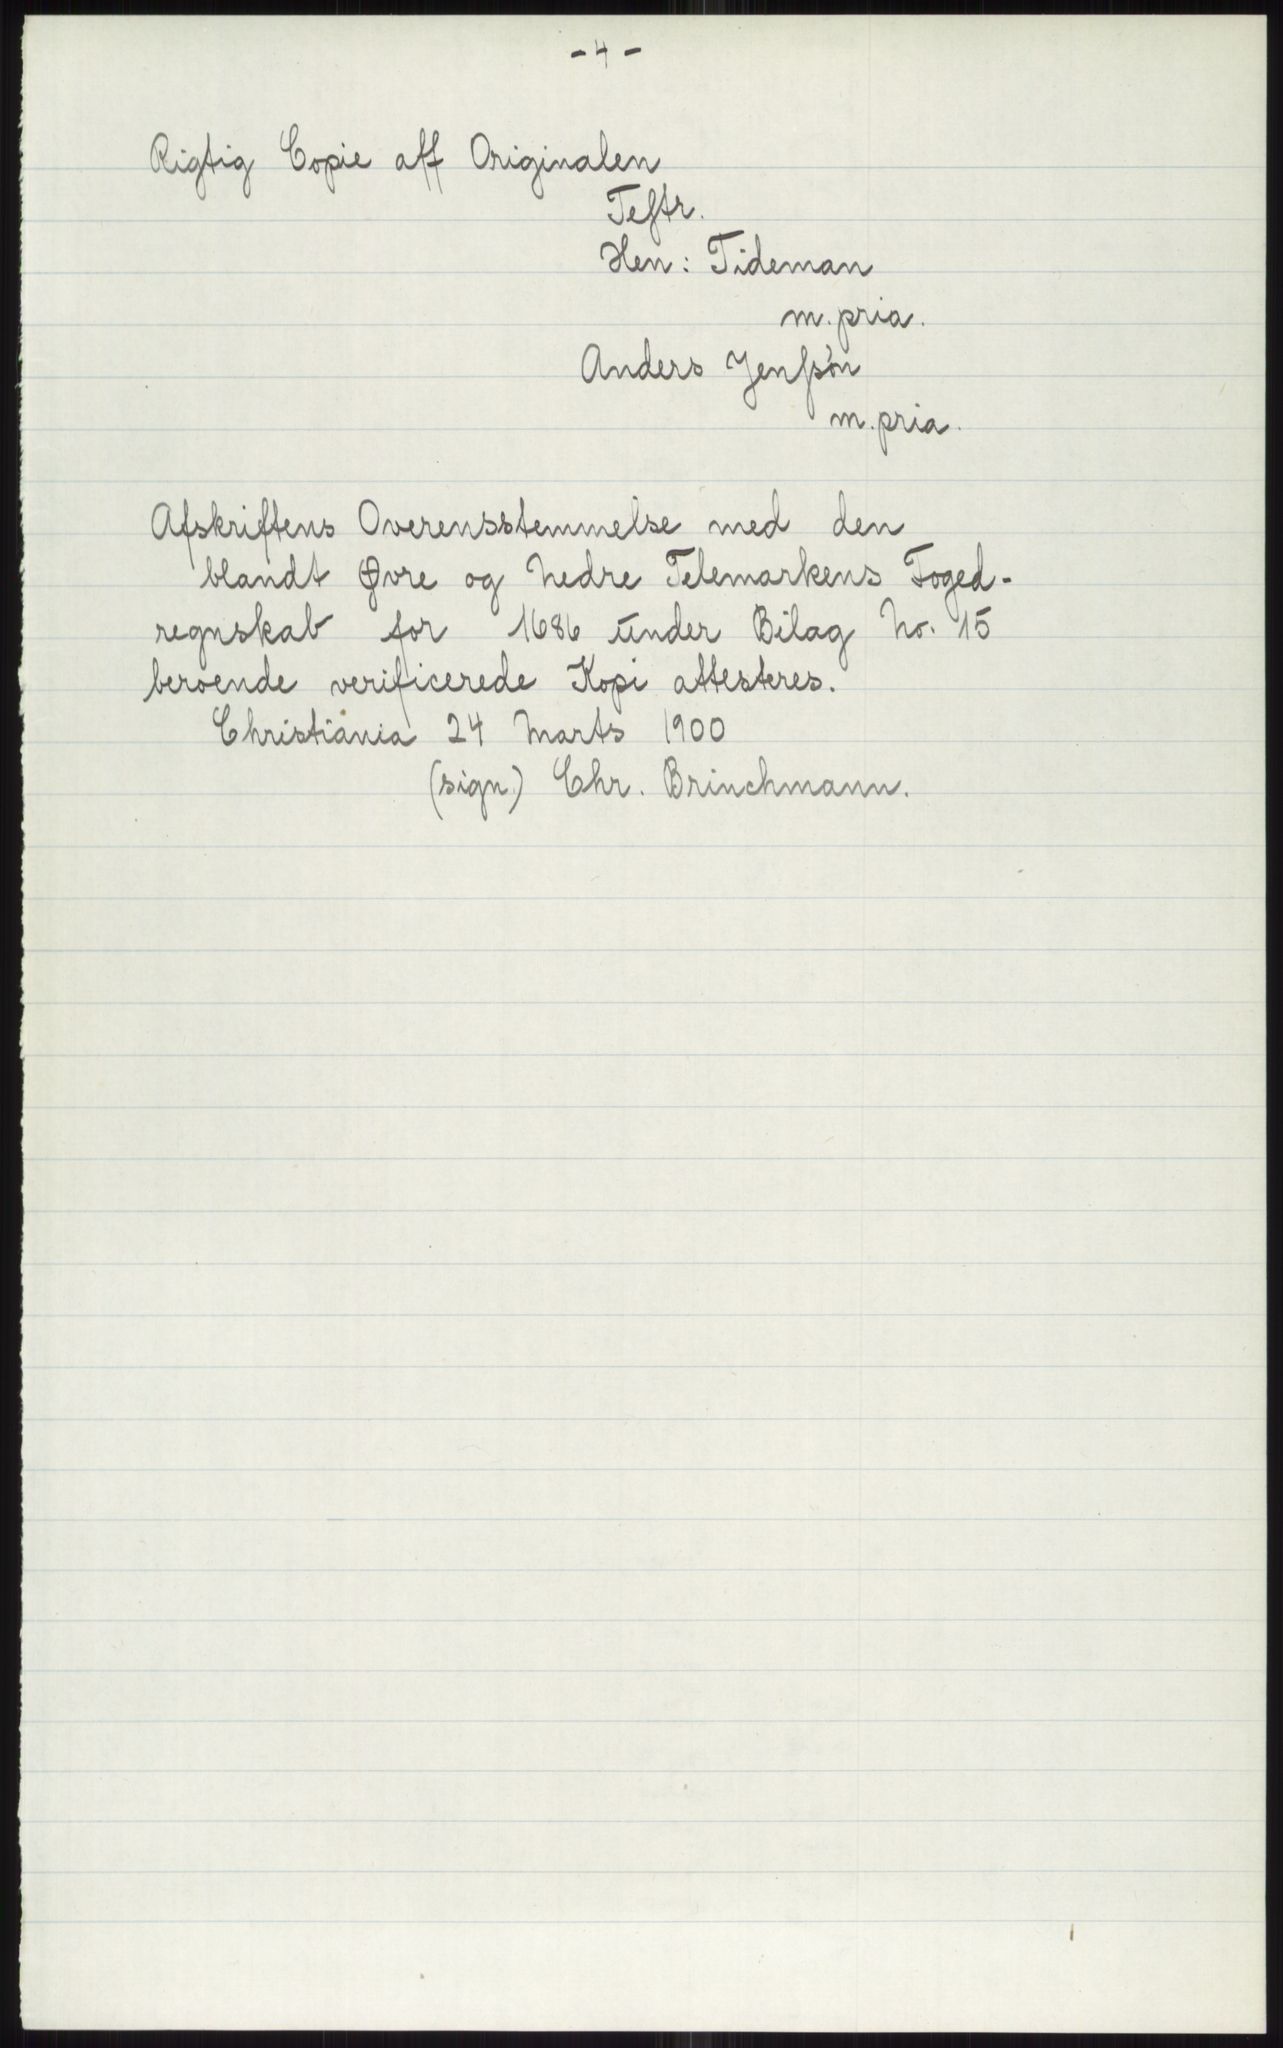 - 4 -
Rigtig Copie aff Originalen
Teſtr.
Hen: Tideman
m.pria.
Anders Jenſsøn
m.pria.
Afskriftens Overensstemmelse med den
blandt Øvre og Nedre Telemarkens Foged-
regnskab for 1686 under Bilag No. 15
beroende verificerede Kopi attesteres.
Christiania 24 Marts 1900
(sign.) Chr. Brinchmann.